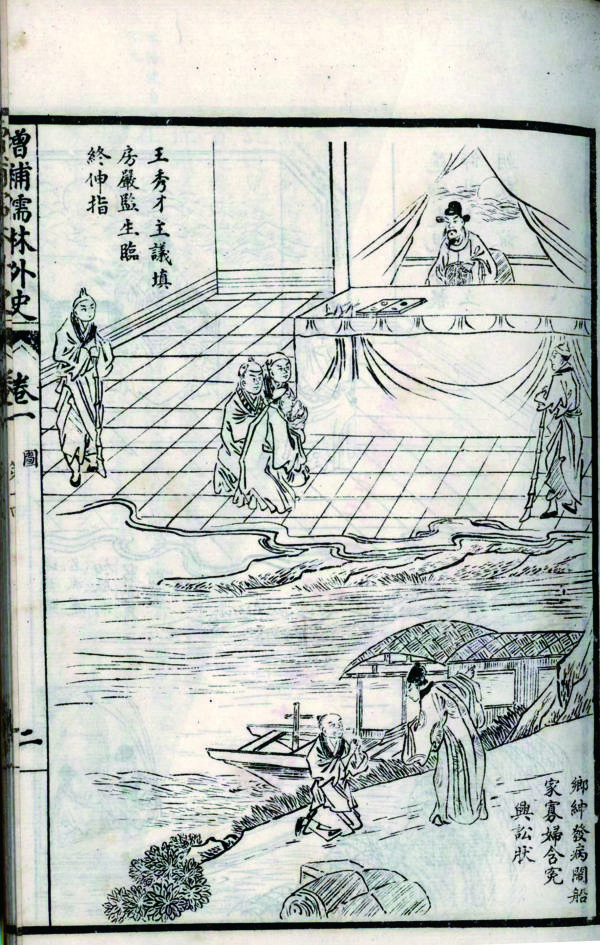 王秀才主議填
房嚴監生臨
終伸指
鄉紳發病鬧船
家寡婦含寃
興訟狀
增補儒林外史
卷一
圖
二